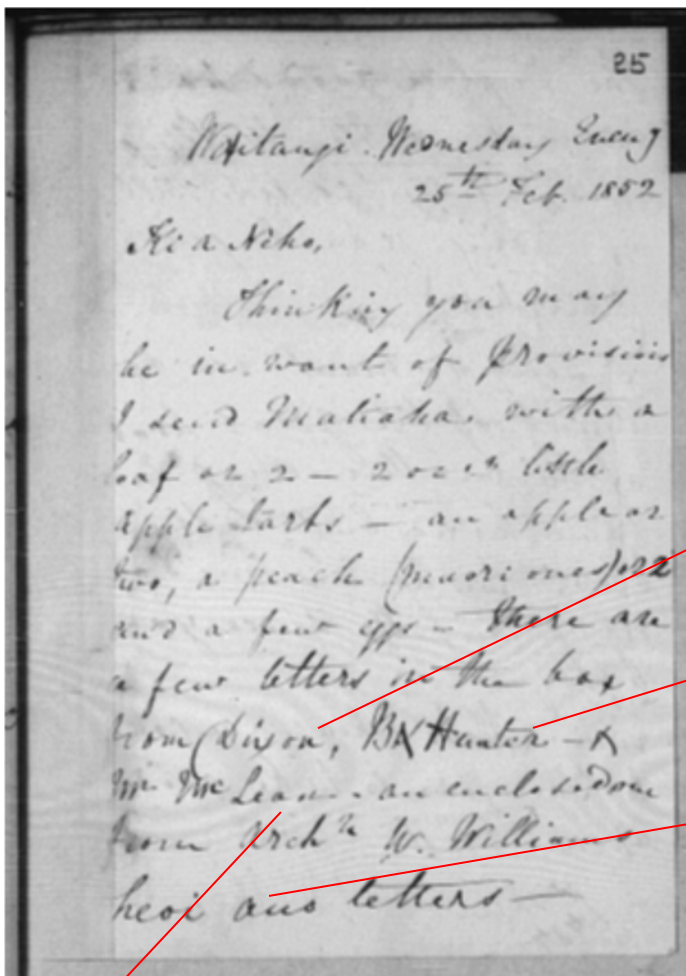 25
Waitangi. Wednesday Eveng
25th Feb. 1852
Ki a Niho,
Thinking you may
be in want of provisions
I send Matiaha, with a
loaf or 2 — 2 or 3 little
apple tarts — an apple or
two, a peach (maori ones) or 2
and a few eggs — there are
a few letters in the box
from Dixon, Hunter —
Mr McLean — an enclosed one
from Archn W. Williams
heoi ano letters —